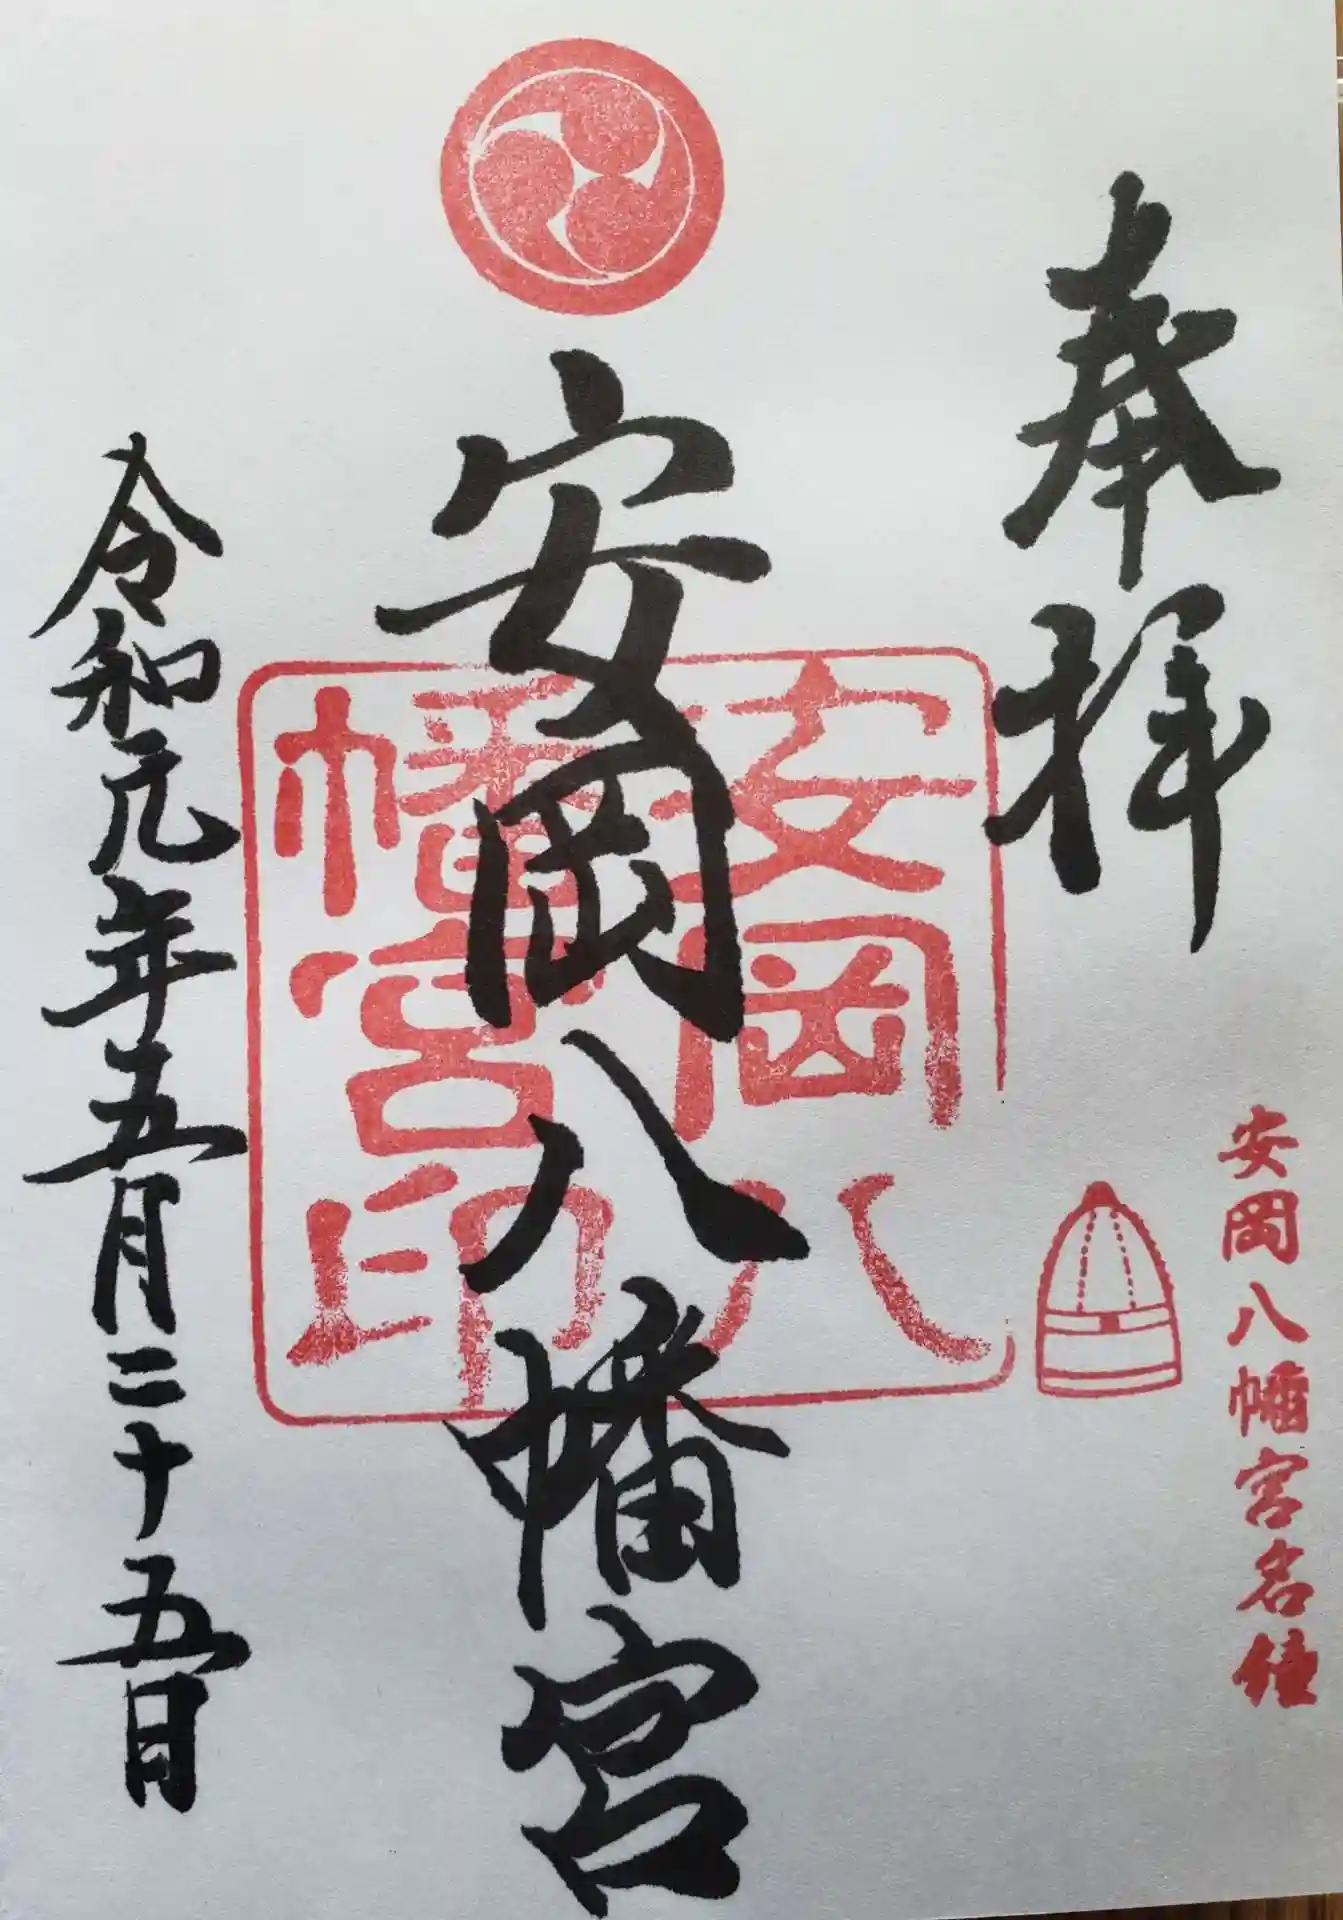 奉拝
安岡八幡宮名鐘
安岡八幡宮
安岡八
幡宮印
令和元年五月二十五日